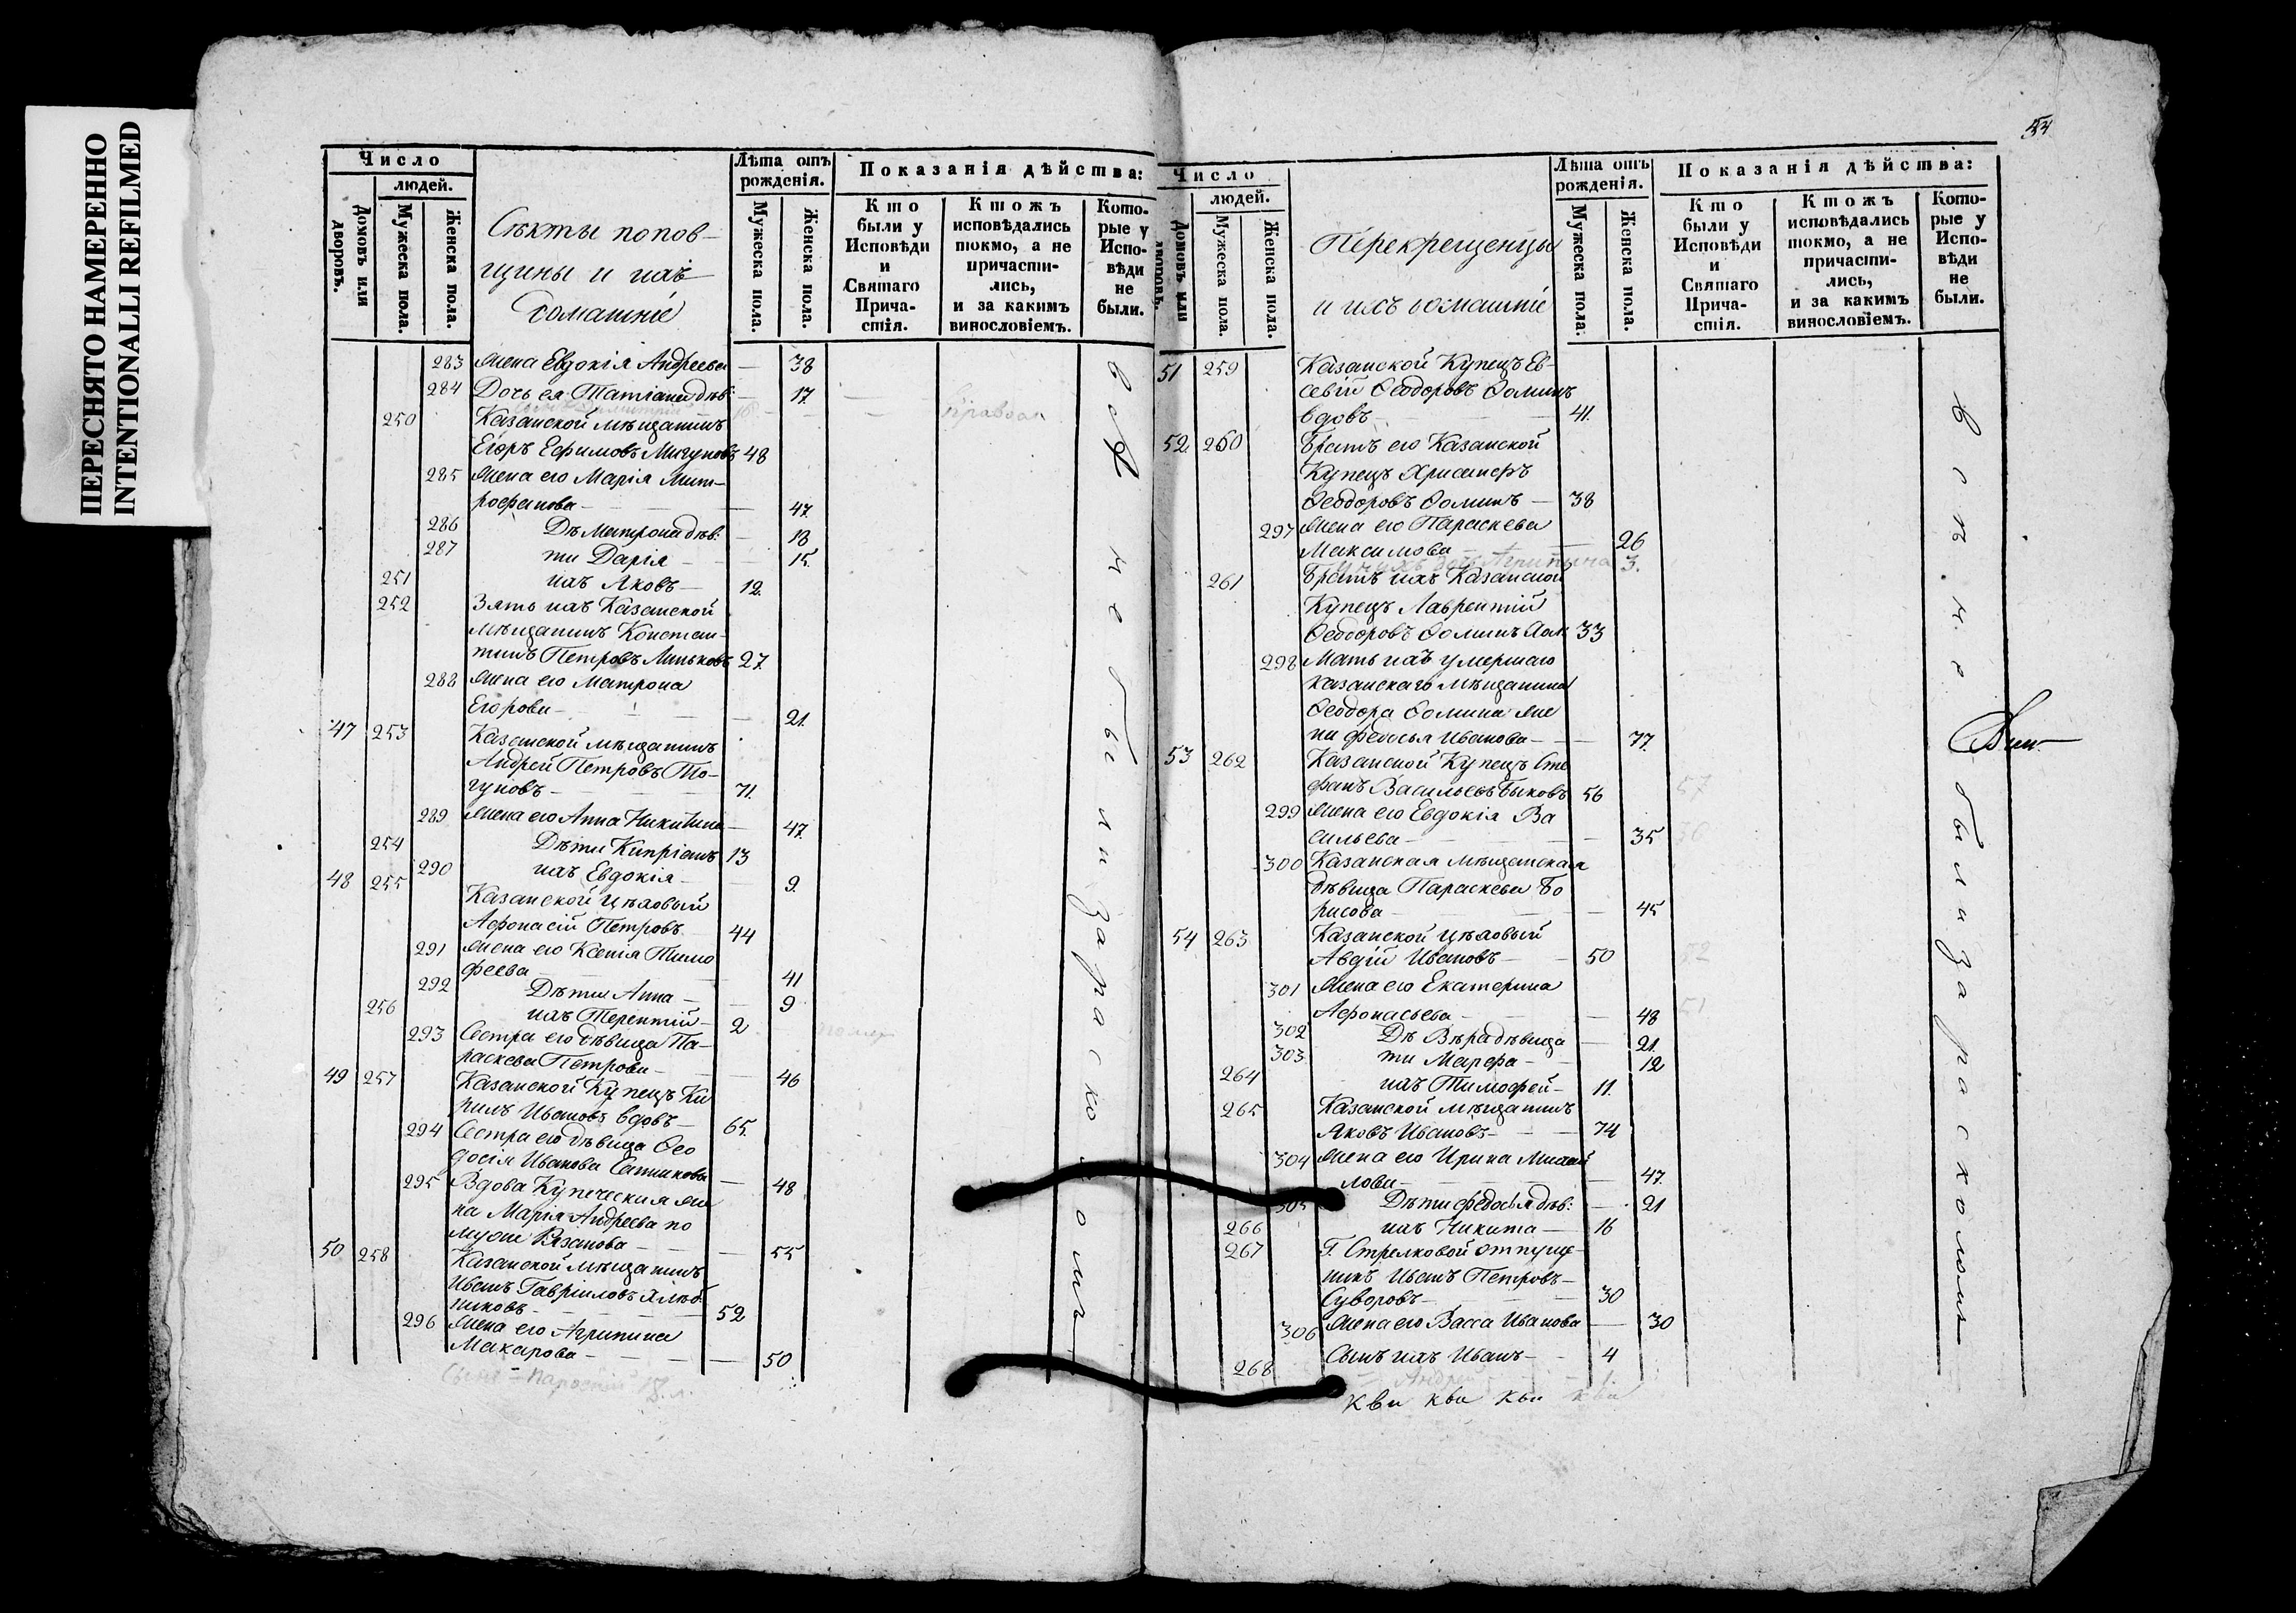 ПЕРЕСНЯТО НАМЕРЕННО
INTENTIONALLI REFILMED
Число
людей.
Домовъ или дворовъ.
Мужеска пола.
Женска пола.
Секты попов-
щины и ихъ
домашніе
Лѣта отъ рожденія.
Мужеска пола.
Женска пола.
Показанія дѣйства:
Кто были у Исповѣди и Святаго Прича-стія.
Ктожъ исповѣдались токмо, а не причасти-лись, и за какимъ винословіемъ.
Кото-рые у Испо-вѣди не были.
283 Жена Евдокія Андреева — 38
284 Дочь ея Татіана дѣв: — 17.
250 Казанской мѣщанинъ
Егоръ Ефимовъ Мигуновъ 48
285 Жена его Марія Мит-
рофанова — 47.
286 Дѣ Матрона дѣв: — 18
287 ти Дарія — 15.
251 ихъ Яковъ — 12.
252 Зять ихъ Казанской
мѣщанинъ Констан-
тинъ Петровъ 27.
288 Жена его Матрона
Егорова — 21.
47 253 Казанской мѣщанинъ
Андрей Петровъ
71.
289 Жена его Анна Никитина — 47.
254 Дѣти Кипріанъ 13
290 ихъ Евдокія — 9.
48 255 Казанской цѣховый
Афонасій Петровъ 44
291 Жена его Ксенія Тимо
феева — 41
292 Дѣти Анна — 9
256 ихъ Терентій — 2
293 Сестра его дѣвица Па-
раскева Петрова — 46
49 257 Казанской Купецъ Ки
рилъ Ивановъ вдовъ — 65.
294 Сестра его дѣвица Ѳео
досія Иванова — 48
295 Вдова Купеческая же
на Марія Андреева по
мужѣ Рязанова — 55
50 258 Казанской мѣщанинъ
Иванъ Гавріиловъ Хлѣб
никовъ — 52
296 Жена его Агрипина
Макарова — 50
все не были за расколомъ
Число
людей.
Домовъ или дворовъ.
Мужеска пола.
Женска пола.
Перекрещенцы
и ихъ домашніе
Лѣта отъ рожденія.
Мужеска пола.
Женска пола.
Показанія дѣйства:
Кто были у Исповѣди и Святаго Прича-стія.
Ктожъ исповѣдались токмо, а не причасти-лись, и за какимъ винословіемъ.
Кото-рые у Испо-вѣди не были.
51 259 Казанской Купецъ Ев-
севій Ѳеодоровъ Ѳоминъ
вдовъ — 41.
52. 260 Братъ его Казанской
Купецъ
Ѳеодоровъ Ѳоминъ — 38
297 Жена его Параскева
Максимова — 26
3.
261 Братъ ихъ Казанской
Купецъ Лаврентій
Ѳеодоровъ Ѳоминъ 33
298 Мать ихъ умершаго
Казанскаго мѣщанина
Ѳеодора Ѳомина же
на Федосья Иванова — 77.
53 262 Казанской Купецъ Сте
фанъ Васильевъ Быковъ 56
299 Жена его Евдокія Ва
сильева — 35
300 Казанская мѣщанская
дѣвица Параскева Бо
рисова — 45
54 263 Казанской цѣховый
Авдій Ивановъ — 50
301 Жена его Екатерина
Афонасьева — 48
302 Дѣ Вѣра дѣвица — 21.
303 ти Марфа — 12
264 ихъ Тимофей — 11.
265 Казанской мѣщанинъ
Яковъ Ивановъ — 74
304 Жена его Ирина Михай
лова — 47.
305 Дѣти Федосья дѣв: — 21
266 ихъ Никита — 16
267 Г. Стрелковой отпуще-
никъ Иванъ Петровъ —
Суворовъ — 30
306 Жена его Васса Иванова — 30
268 Сынъ ихъ Иванъ — 4
кви кви кви кви
все не были за расколомъ